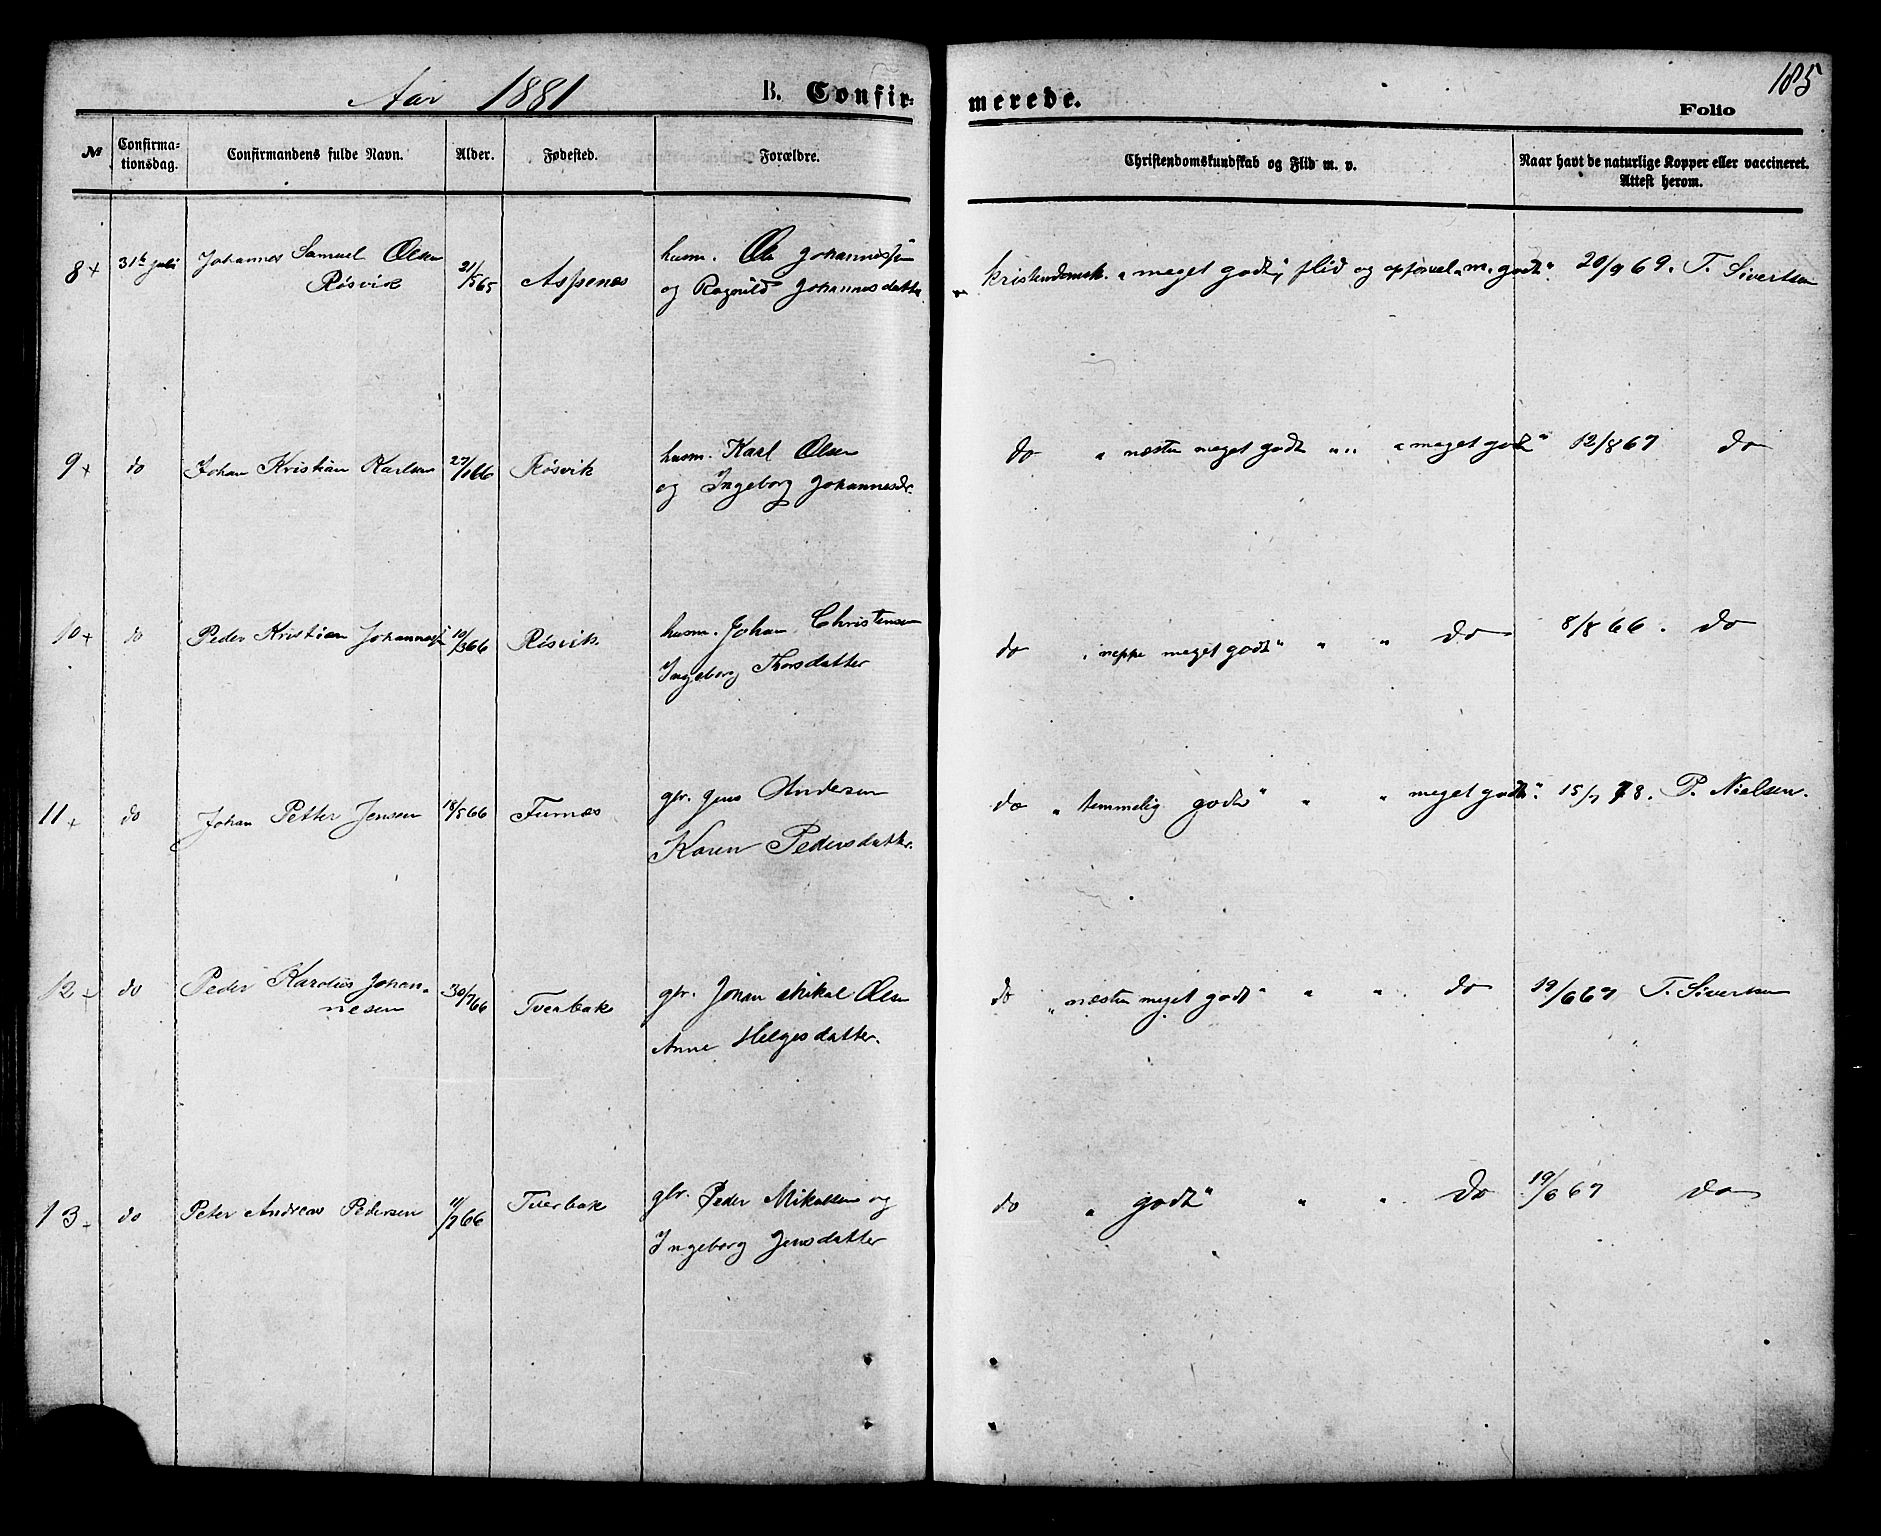 Aar 1881 B. Confirmerede. 185
Folio
№ Confirmationsdag. Confirmandens fulde Navn. Alder. Fødested. Forældre. Christendomskundskab og Flid m. v. Naar havt de naturlige Kopper eller vaccineret. Attest herom.
8+ 31te juli Johannes Samuel Olsen 21/5 65 Aspenæs husm. Ole Johannessen kristendomsk. "meget godt"; flid og opførsel "m. godt" 20/9 69. T. Sivertsen
Røsvik og Ragnild Johannesdatter
9+ do Johan Kristian Karlsen 27/1 66 Røsvik husm. Karl Olsen do "næsten meget godt" " " "meget godt" 12/8 67 do
og Ingeborg Johannesdr.
10+ do Peder Kristian Johannesen 10/3 66 Røsvik husm. Johan Christensen do "neppe meget godt" " " do 8/8 66. do
Ingeborg Thorsdatter
11+ do Johan Petter Jensen 18/5 66 Furnæs gbr. Jens Andersen do "temmelig godt" " "meget godt". 15/7 78. P. Nielsen.
Karen Pedersdatter.
12+ do Peder Karolius Johan- 30/7 66 Tverbak gbr. Johan Mikal Olsen do "næsten meget godt" " " do 19/6 67 T. Sivertsen
nesen Anne Helgesdatter.
13+ do Peter Andreas Pedersen 11/7 66 Tverbak gbr. Peder Mikalsen og do "godt" " " do 19/6 67 do
Ingeborg Jensdatter